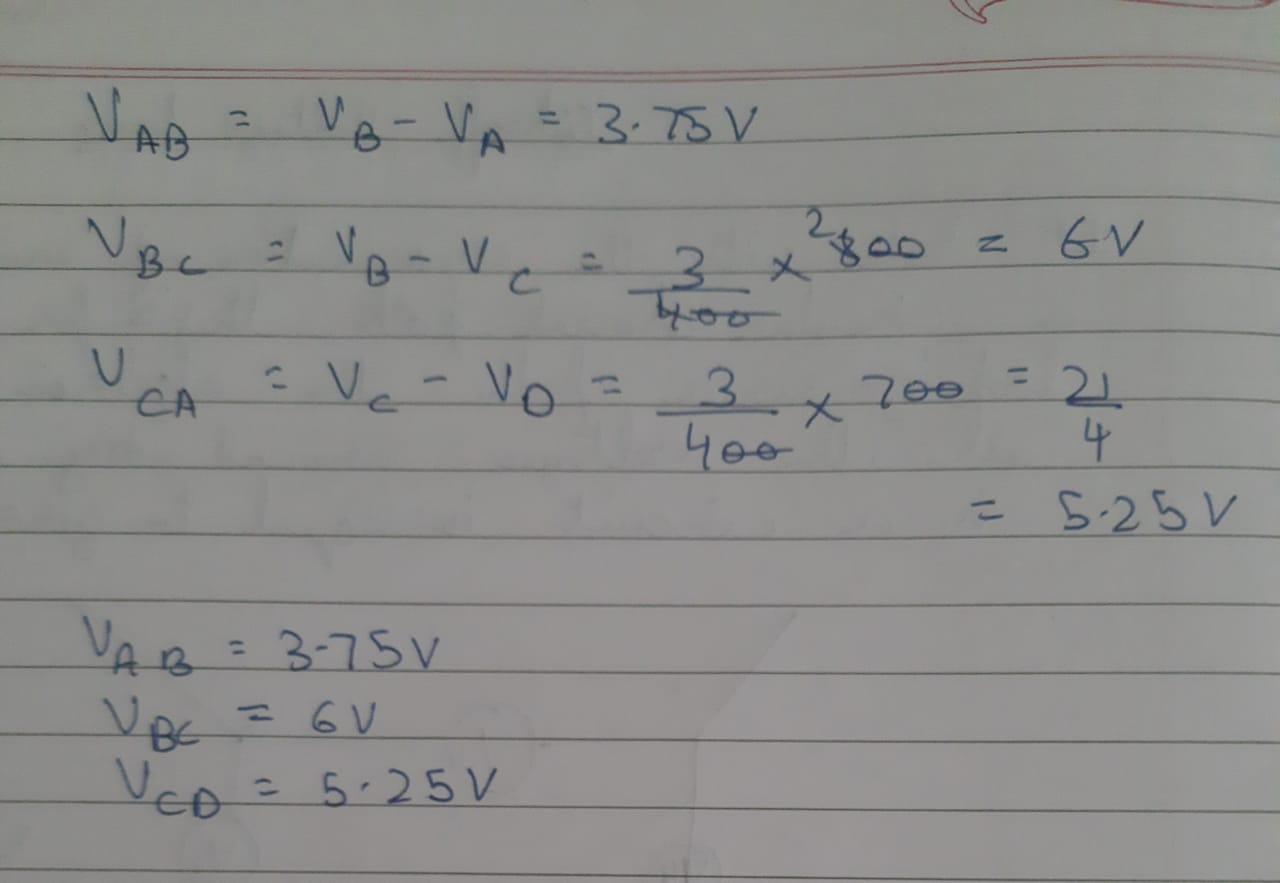 V_AB = V_B - V_A = 3.75V
V_BC = V_B - V_C = 3/400 × ²800 = 6V
V_CA = V_C - V_D = 3/400 × 700 = 21/4
= 5.25V
V_AB = 3.75V
V_BC = 6V
V_CD = 5.25V